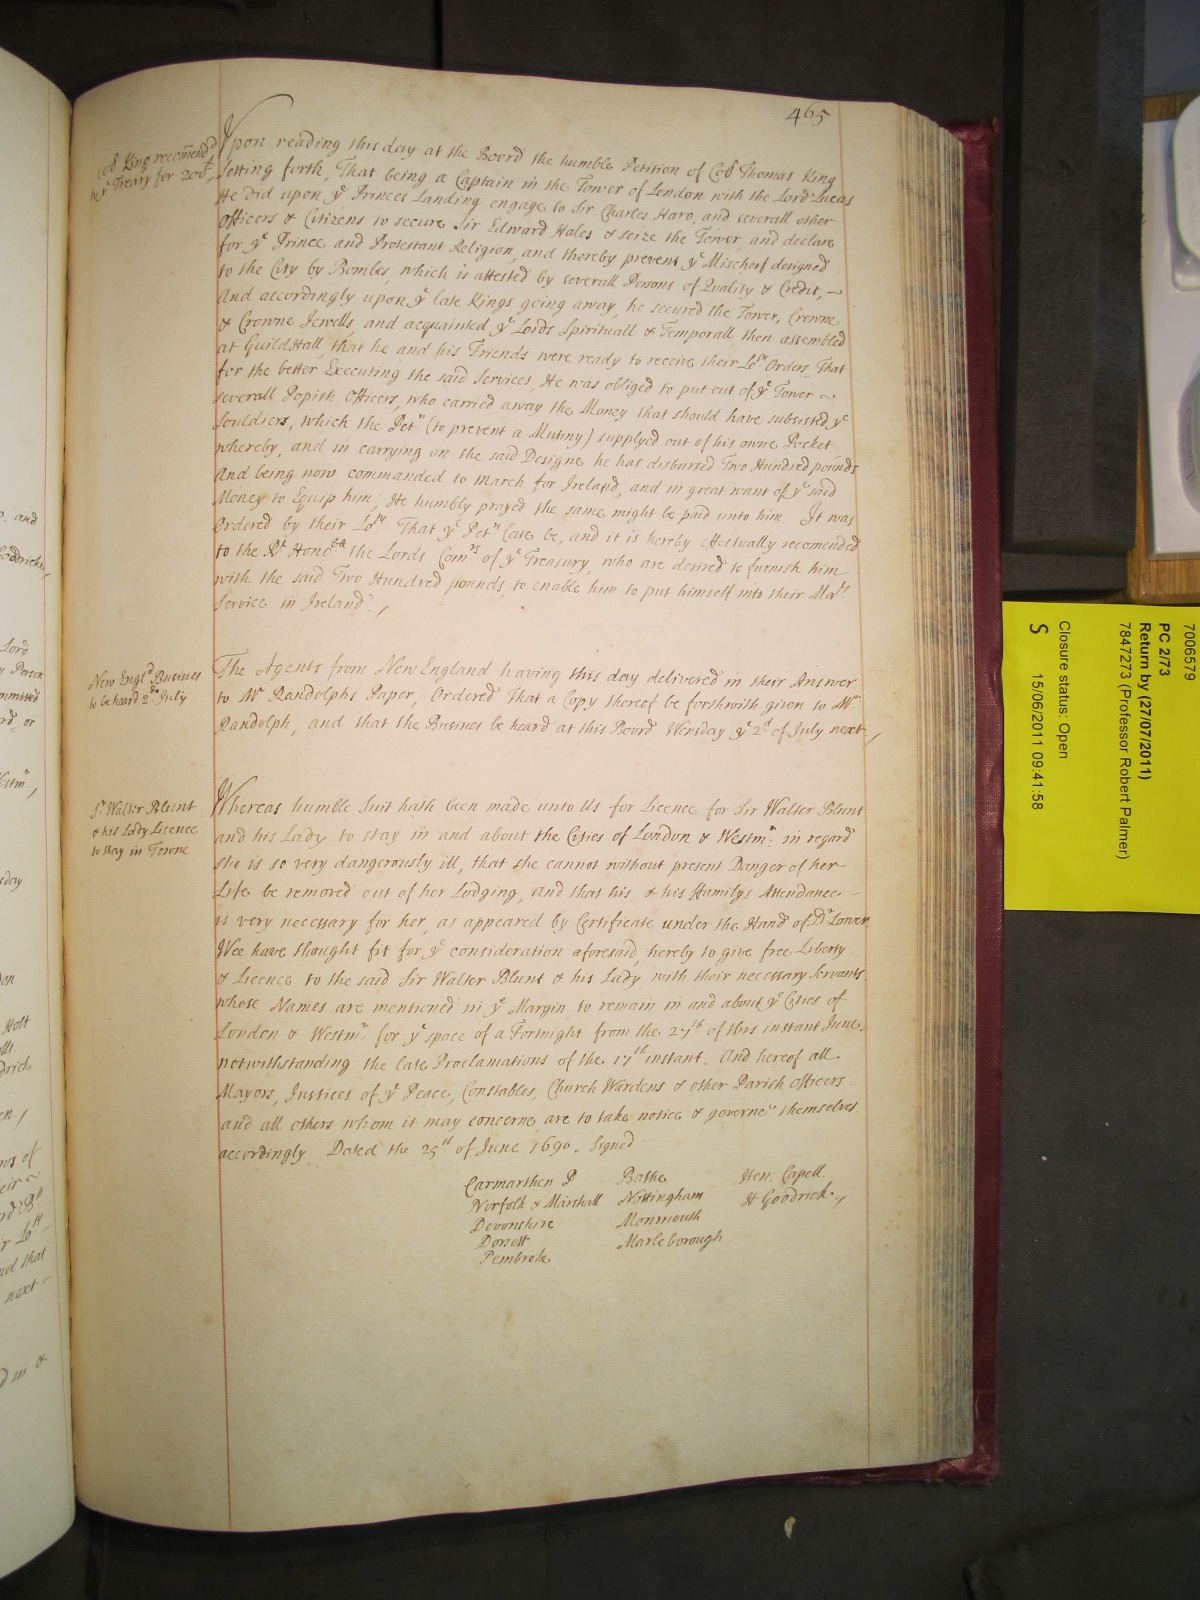 465
Col King recomend^d
to y^e Treary for 200^l
Upon reading this day at the Boord the humble Petition of Col Thomas King
Setting forth, That being a Captain in the Tower of London with the Lord Lucas
He did upon y^e Princes Landing engage to Sir Charles Haro, and severall other
Officers & Citizens to secure Sir Edward Hales & seize the Tower, and declare
for y^e Prince and Protestant Religion, and thereby prevent y^e Mischeif designed
to the City by Bombes, which is attested by severall Persons of Quality & Credit,
And accordingly upon y^e late Kings going away, he secured the Tower, Crowne
& Crowne Jewells, and acquainted y^e Lords Spirituall & Temporall, then assembled
at GuildHall, that he and his Friends were ready to receive their Lo^ps Orders, That
for the better Executing the said Services, He was obliged to put out of y^e Tower
severall Popish Officers, who carried away the Money that should have subsisted y^e
Souldiers, which the Pet^r (to prevent a Mutiny) supplyed out of his owne Pocket
whereby, and in carrying on the said Designe he has disbursed Two Hundred pounds
And being now commanded to march for Ireland, and in great want of y^e said
Money to Equip him; He humbly prayed the same might be paid unto him. It was
Ordered by their Lo^ps That y^e Pet^rs Case be, and it is hereby effectually recomended
to the R^t Hono^ble the Lords Com^rs of y^e Treasury, who are desired to furnish him
with the said Two Hundred pounds to enable him to put himself into their Ma^ts
Service in Ireland.
New Engl^d Busines
to be heard 2^d July
The Agents from New England having this day delivered in their Answer
to M^r Randolphs Paper, Ordered That a Copy thereof be forthwith given to M^r
Randolph, and that the Busines be heard at this Boord Wensday y^e 2^d of July next
S^r Walter Blunt
& his Lady Licence
to stay in Towne
Whereas humble Suit hath been made unto Us for Licence for Sir Walter Blunt
and his Lady to stay in and about the Cities of London & Westm^r. in regard
she is so very dangerously ill, that she cannot without present Danger of her
Life be removed out of her Lodging, and that his & his Hamilys Attendance
is very necessary for her, as appeared by Certificate under the Hand of D^r Lower
Wee have thought fit for y^e consideration aforesaid, hereby to give free Liberty
& Licence to the said Sir Walter Blunt & his Lady, with their necessary Servants
whose Names are mentioned in y^e Margin, to remain in and about y^e Cities of
London & Westm^r. for y^e space of a Fortnight from the 27^th of this instant June,
notwithstanding the late Proclamations of the 17^th instant. And hereof all
Mayors, Justices of y^e Peace, Constables, Church Wardens & other Parish Officers
and all others whom it may concerne, are to take notice & governe themselves
accordingly. Dated the 25^th of June 1690. Signed
Carmarthen P Bathe Hen: Capell
Norfolk & Marshall Nottingham H Goodrick
Devonshire Monmouth
Dorsett Marleborough
Pembroke
7006579
PC 2/73
Return by (27/07/2011)
7847273 (Professor Robert Palmer)
Closure status: Open
15/06/2011 09:41:58
S